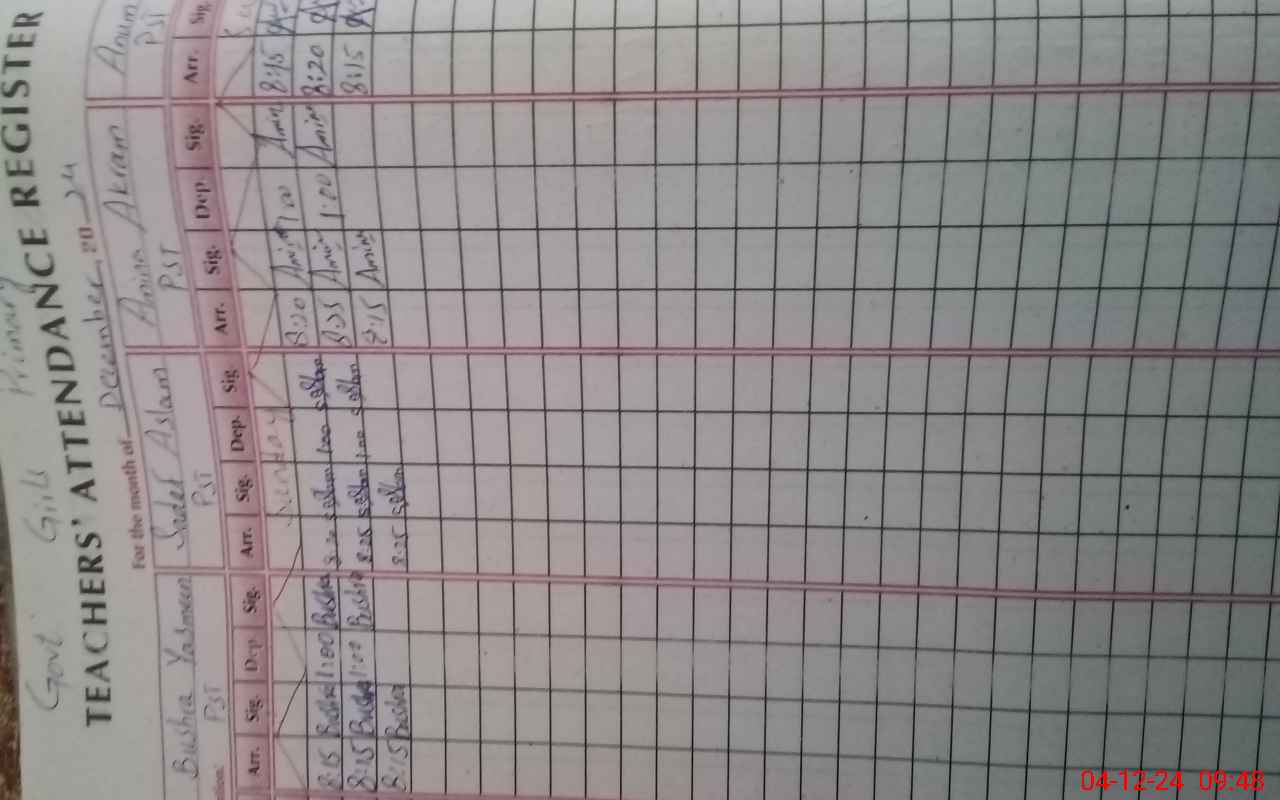 Govt Girls Primary
TEACHERS' ATTENDANCE REGISTER
For the month of December 2024
Bushra Yasmeen Sadef Aslam Amina Akram Anum
PST PST PST PST
Arr. Sig. Dep. Sig. Arr. Sig. Dep. Sig. Arr. Sig. Dep. Sig. Arr. Sig.
Sunday
8:15 Bushra 1:00 Bushra 8:20 1:00 8:20 Amin 1:00 Amin 8:15
8:15 Bushra 1:00 Bushra 8:25 1:00 8:25 Amin 1:00 Amin 8:20
8:15 Bushra 8:25 8:15 Amin 8:15
04-12-24 09:48